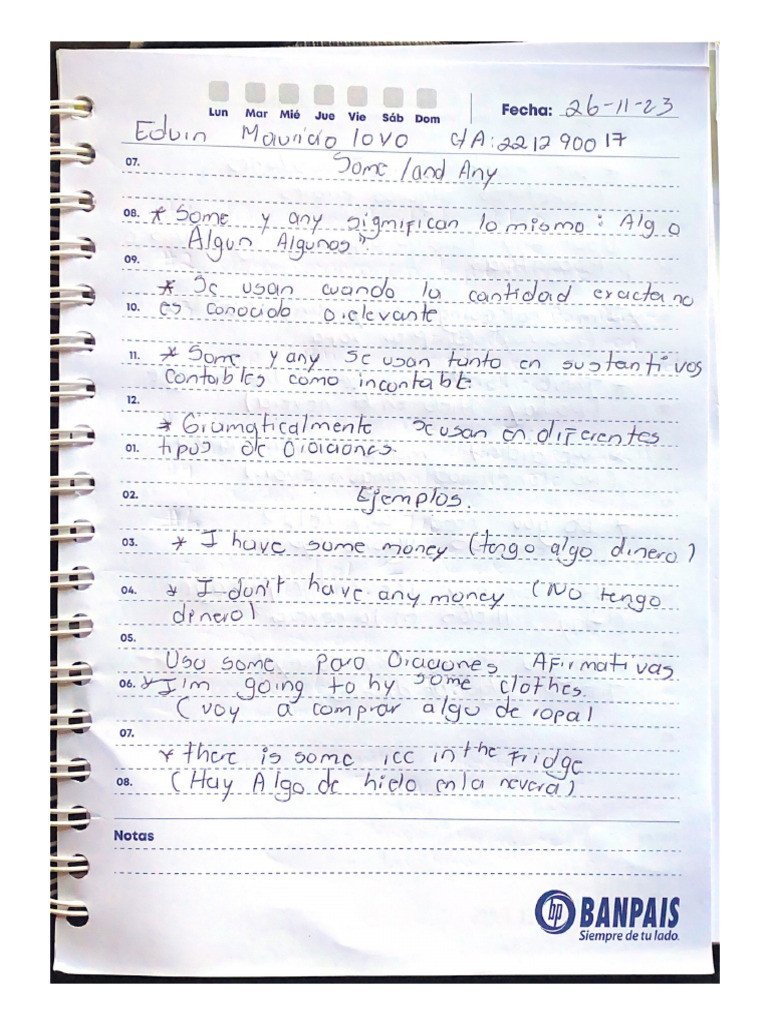 Lun Mar Mié Jue Vie Sáb Dom Fecha: 26-11-23
Edvin Mauricio Iovo c/A: 221290017
07. Some /and Any
08. * Some y any significan lo mismo: Algo
Algun Algunos"
09.
* Se usan cuando la cantidad exacta no
10. es conocido o relevante
11. * Some y any se usan tanto en sustantivos
contables como incontable
12.
* Gramaticalmente se usan en diferentes
01. tipos de Oraciones.
02. Ejemplos.
03. * I have some money (tengo algo dinero)
04. * I don't have any money (No tengo
dinero)
05.
Uso some para Oraciones Afirmativas
06. * I'm going to by some clothes.
(voy a comprar algo de ropa)
07.
* there is some ice in the Fridge
08. (Hay Algo de hielo en la nevera)
Notas
bp BANPAIS
Siempre de tu lado.